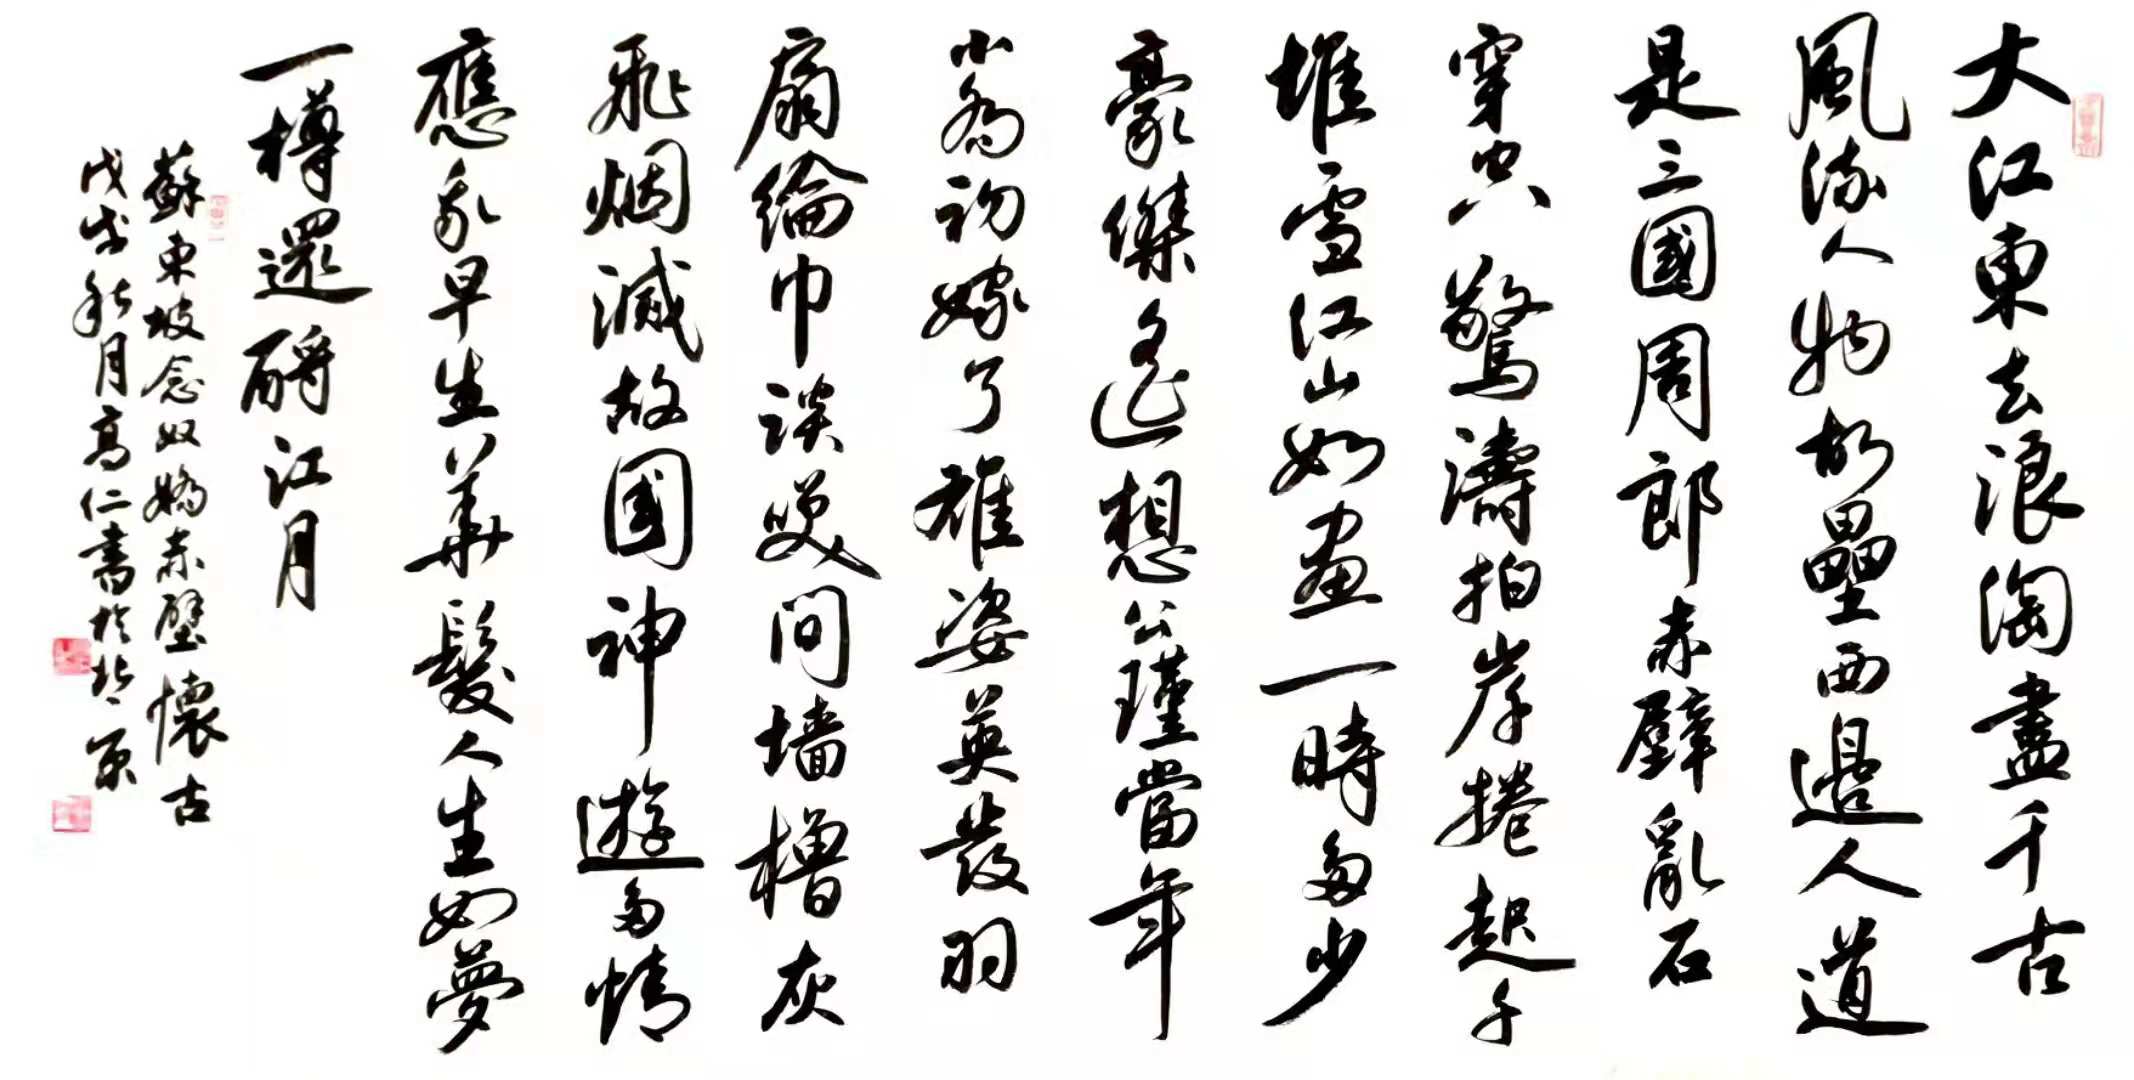 大江東去浪淘盡千古
風流人物故壘西邊人道
是三國周郎赤壁亂石
穿空驚濤拍岸捲起千
堆雪江山如畫一時多少
豪傑遙想公瑾當年
小喬初嫁了雄姿英發羽
扇綸巾談笑间墙櫓灰
飛烟滅故国神遊多情
應我早生華髮人生如夢
一樽還酹江月
蘇東坡念奴嬌赤壁懷古
戊戌秋月高仁書於北京